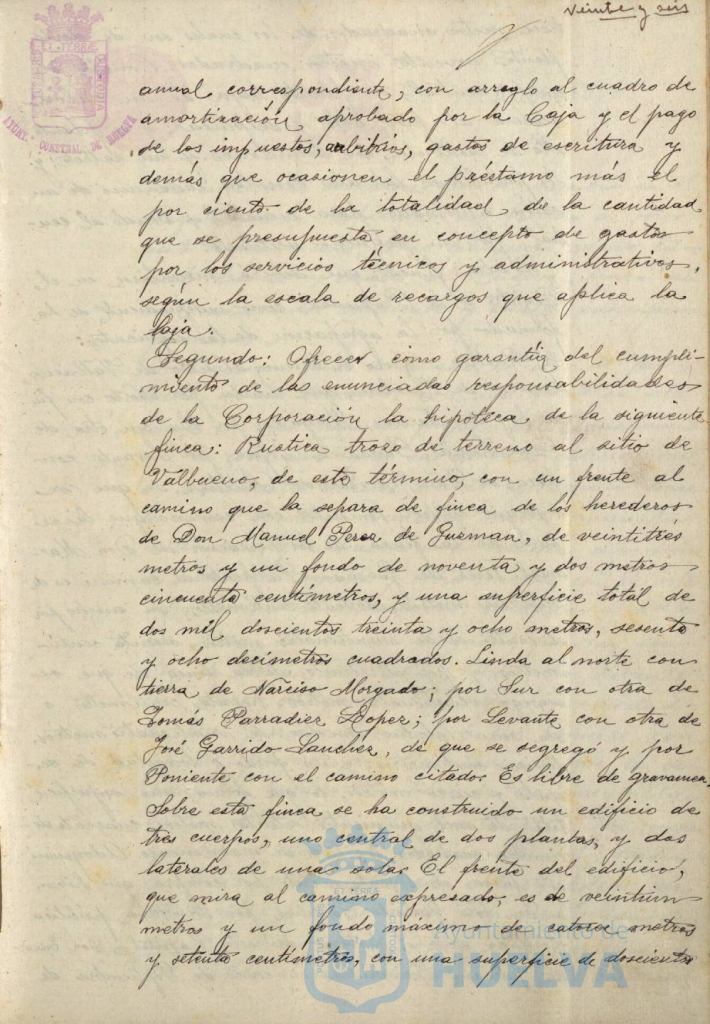 Veinte y seis
anual correspondiente, con arreglo al cuadro de
amortización aprobado por la Caja y el pago
de los impuestos, arbitrios, gastos de escritura y
demás que ocasionen el préstamo más el
por ciento de la totalidad de la cantidad
que se presupuesta en concepto de gastos
por los servicios técnicos y administrativos,
según la escala de recargos que aplica la
Caja.
Segundo: Ofrecer como garantía del cumpli-
miento de las enunciadas responsabilidades
de la Corporación la hipoteca de la siguiente
finca: Rustica trozo de terreno al sitio de
Valbueno, de este término, con un frente al
camino que la separa de finca de los herederos
de Don Manuel Perez de Guzman, de veintitrés
metros y un fondo de noventa y dos metros
cincuenta centímetros, y una superficie total de
dos mil doscientos treinta y ocho metros, sesenta
y ocho decímetros cuadrados. Linda al norte con
tierra de Narciso Morgado; por Sur con otra de
Tomás Parradiez Lopez; por Levante con otra de
José Garrido Sanchez, de que se segregó y por
Poniente con el camino citado. Es libre de gravamen.
Sobre esta finca se ha construido un edificio de
tres cuerpos, uno central de dos plantas, y dos
laterales de una sola. El frente del edificio,
que mira al camino expresado, es de veintiun
metros y un fondo máximo de catorce metros
y setenta centímetros, con una superficie de doscientos
AYUNT. CONSTNAL. DE HUELVA
Ayuntamiento de
HUELVA